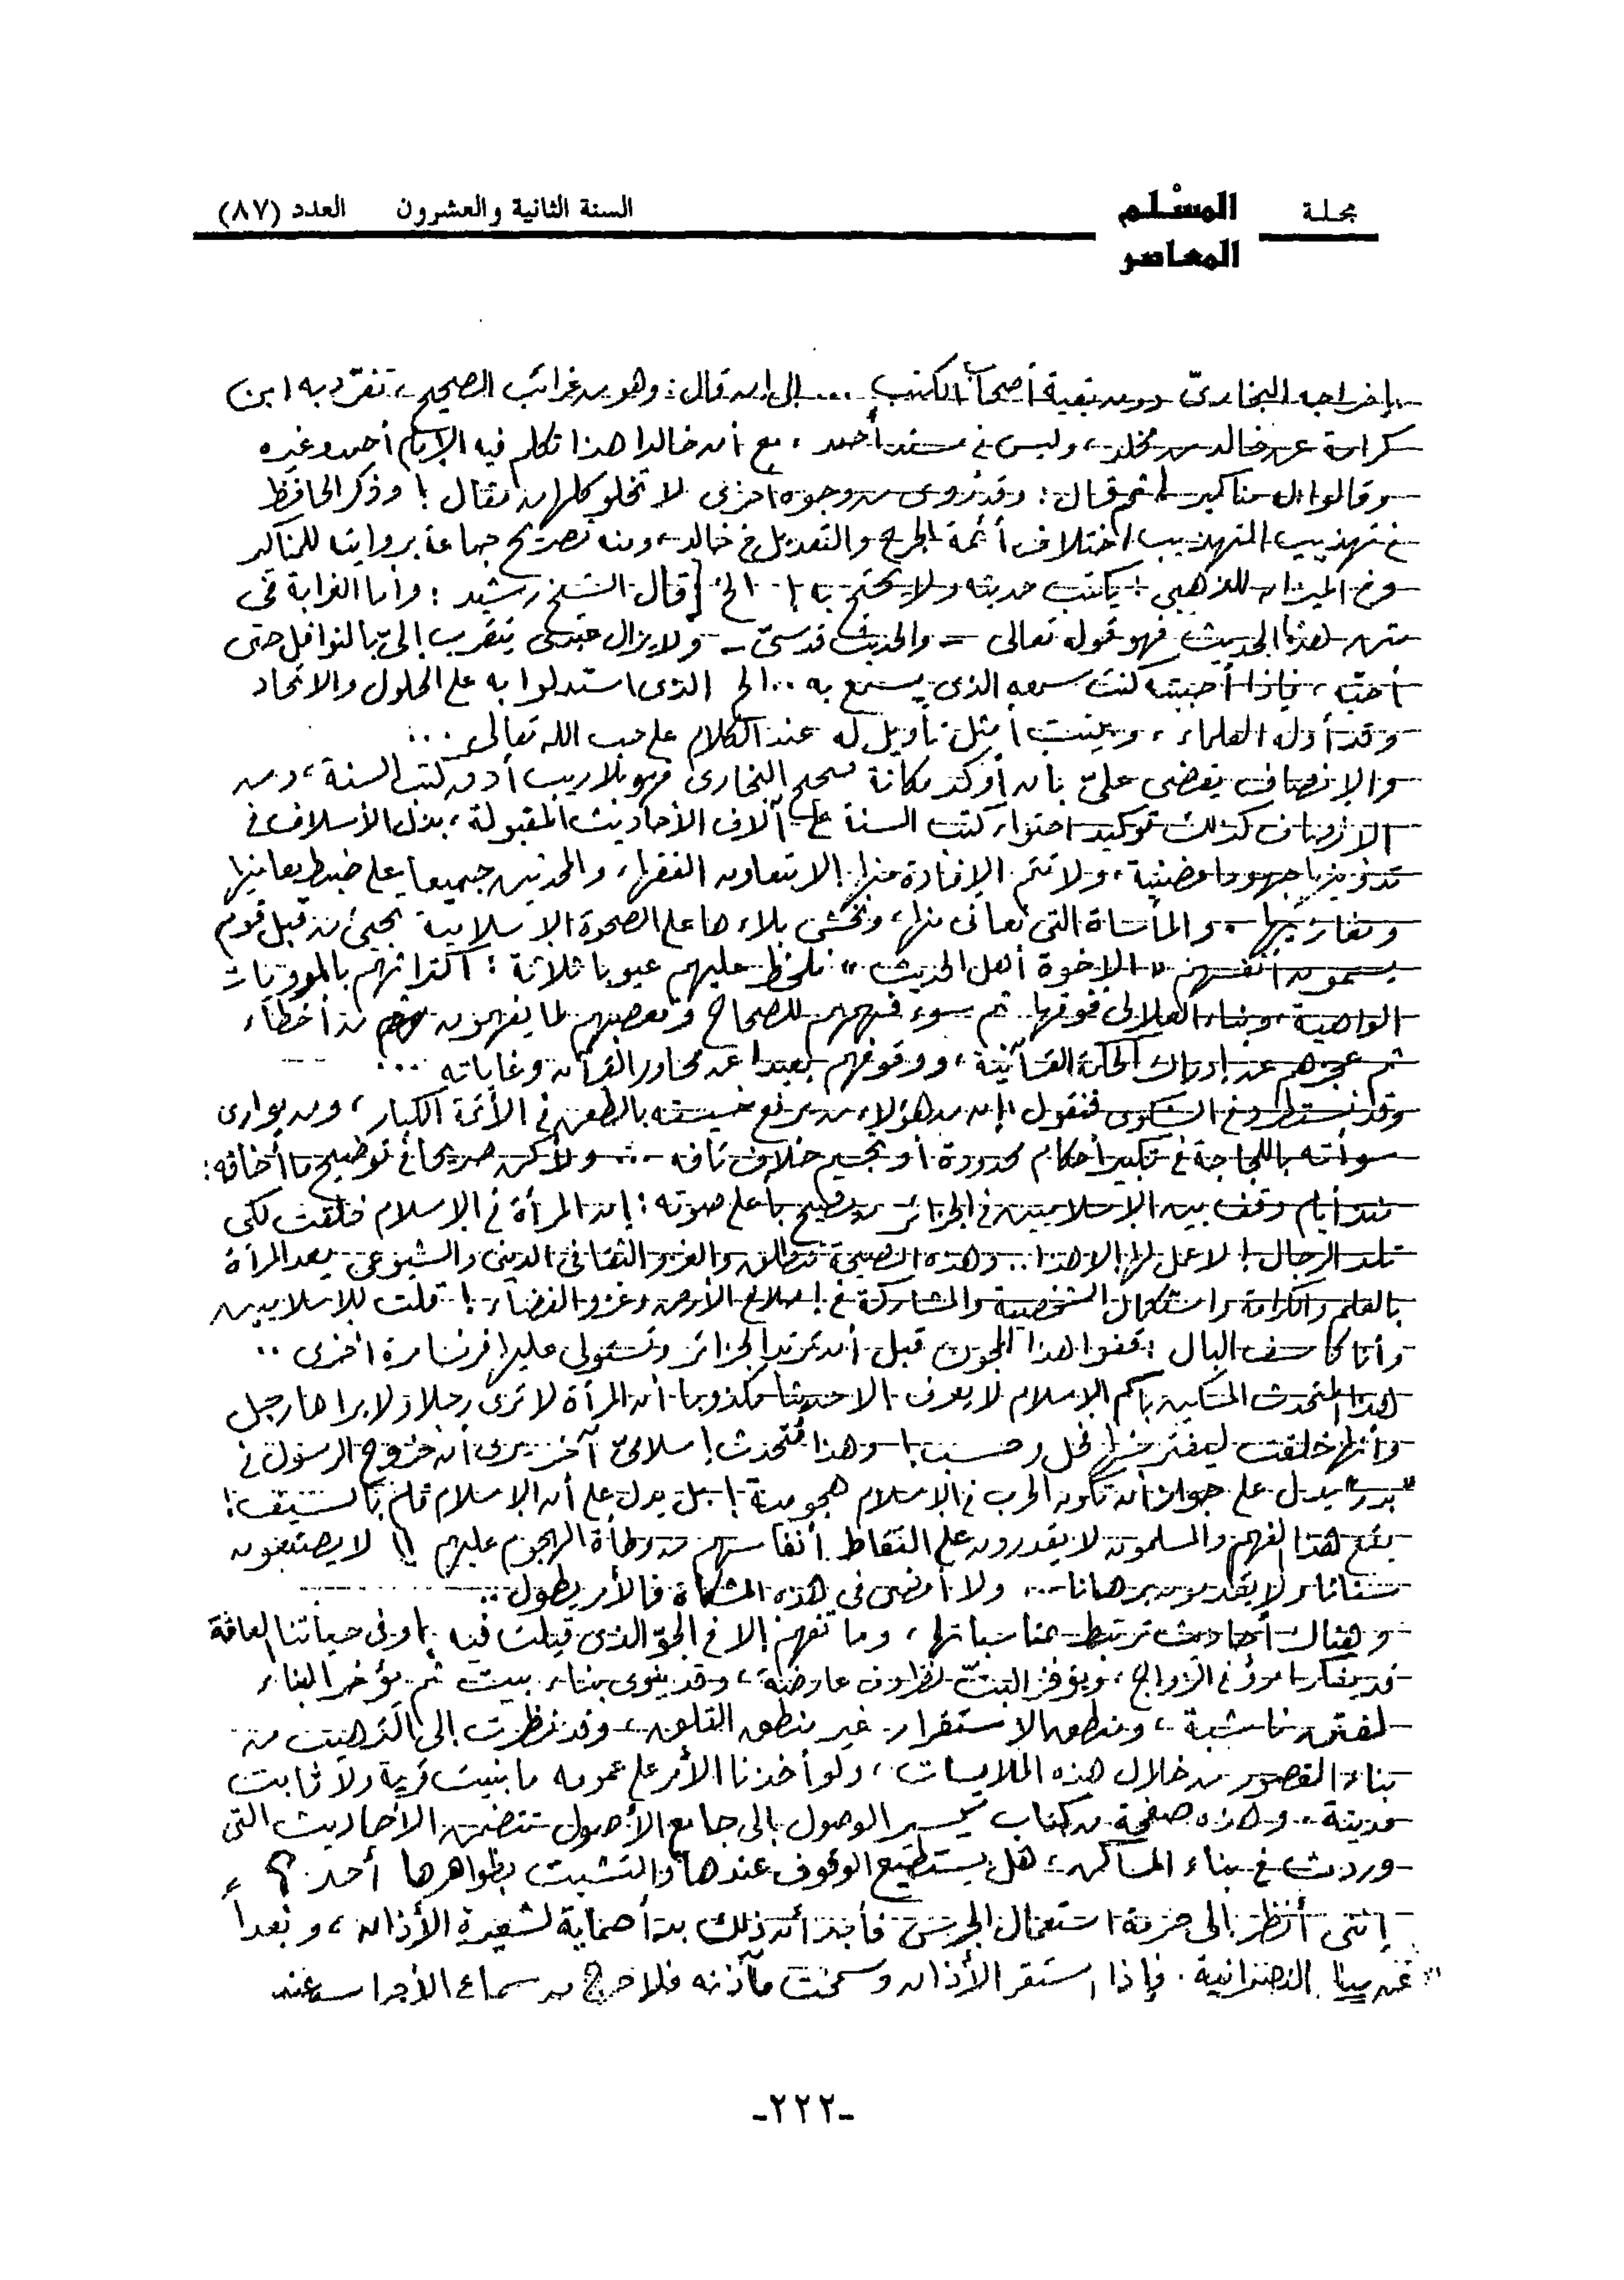 مجلة المسْلم المعاصر السنة الثانية والعشرون العدد (٨٧)
بإخراجه البخاريّ دون بقية أصحاب الكتب ... إلى أن قال : وهو من غرائب الصحيح ، تفرّد به ابن
كرامة عن خالد بن مخلد ، وليس في مسند أحمد ، مع أن خالدا هذا تكلم فيه الإمام أحمد وغيره
وقالوا إن له مناكير ! ثم قال : وقد روى من وجوه أخرى لا تخلو كلها من مقال ! وذكر الحافظ
في تهذيب التهذيب اختلاف أئمة الجرح والتعديل في خالد ، ومنه تصريح جماعة بروايته للمناكير
وفي الميزان للذهبي : يكتب حديثه ولا يحتج به ! الخ [ قال الشيخ رشيد : وأما الغرابة في
متن هذا الحديث فهو قوله تعالى - والحديث قدسيّ - ولا يزال عبدى يتقرب إلىّ بالنوافل حتى
أحبّه ، فإذا أحببته كنت سمعه الذى يسمع به .. الخ الذى استدلوا به على الحلول والاتحاد
وقد أوله العلماء ، وبينت أمثل تأويل له عند الكلام على حب الله تعالى ...
والإنصاف يقضى علىّ بأن أؤكد مكانة صحيح البخارى فهو بلا ريب أدق كتب السنة ، ومن
الإنصاف كذلك توكيد احتواء كتب السنة على آلاف الأحاديث المقبولة ، بذل الأسلاف في
تدوينها جهودا مضنية ، ولا تتم الإفادة منها إلا بتعاون الفقهاء والمحدثين جميعا على ضبط معانيها
. والمأساة التى نعانى منها ، ونخشى بلاءها على الصحوة الإسلامية تجيئ من قبل قوم
يسمون أنفسهم " الإخوة أهل الحديث " نلحظ عليهم عيوبا ثلاثة : اكتراثهم بالمرويات
الواهية وبناء العلالى فوقها . ثم سوء فهمهم للصحاح وتعصبهم لما يفهمون هم من أخطاء
ثم عجزهم عن إدراك الحكمة القرآنية ، ووقوفهم بعيدا عن محاور القرآن وغاياته ...
وقد نستطرد في الشكوى فنقول : إن من هؤلاء من يرفع خسيسته بالطعن في الأئمة الكبار ، ومن يوارى
سوأته باللجاجة في تكبير أحكام محدودة أو تجسيم خلاف تافه ... ولأكن صريحا في توضيح ما أخافه :
منذ أيام وقف بين الإسلاميين في الجزائر من يصيح بأعلى صوته : إن المرأة في الإسلام خلقت لكى
تلد الرجال ! لا عمل لها إلا هذا .. وهذه الصيحة تنطلق والغزو الثقافى الدينى والشيوعى يعد المرأة
بالعلم والكرامة واستكمال الشخصية والمشاركة في إصلاح الأرض وغزو الفضاء ! قلت للإسلاميين
وأنا كاسف البال : قفوا هذا المجون قبل أن ترتد الجزائر وتستولى عليها فرنسا مرة أخرى ..
هذا المتحدث المسكين باسم الإسلام لا يعرف إلا حديثا مكذوبا أن المرأة لا ترى رجلا ولا يراها رجل
وأنها خلقت ليفترشها فحل وحسب ! وهذا متحدث إسلامىّ آخر يرى أن خروج الرسول في
" بدر " يدل على جواز أن تكون الحرب في الإسلام هجومية ! بل يدل على أن الإسلام قام بالسيف !
يقع هذا الفهم والمسلمون لا يقدرون على التقاط أنفاسهم من وطأة الهجوم عليهم !! لا يصنعون
سنانا ولا يقدمون برهانا ... ولا أمضى في هذه المشكاة فالأمر يطول ..
وهناك أحاديث ترتبط بمناسباتها ، وما تفهم إلا في الجوّ الذى قيلت فيه ! وفى حياتنا العامّة
قد يفكر امرؤ في الزواج ، ويؤخر البتّ لظروف عارضة ، وقد ينوى بناء بيت ثم يؤخر البناء
لفتن ناشبة ، ومنطق الاستقرار غير منطق القلق ، وقد نظرت إلى الترهيب من
بناء القصور من خلال هذه الملابسات ، ولو أخذنا الأمر على عمومه ما بنيت قرية ولا قامت
مدينة .. وهذه صفحة من كتاب تيسير الوصول إلى جامع الأصول تتضمن الأحاديث التى
وردت في بناء المساكن ، هل يستطيع الوقوف عندها والتشبث بظواهرها أحد ؟
إننى أنظر إلى حرمة استعمال الجرس فأجد أن ذلك بدأ حماية لشعيرة الأذان ، وبعداً
عن النصرانية . فإذا استقر الأذان وسمخت مآذنه فلا حرج من سماع الأجراس عند
-٢٢٢-